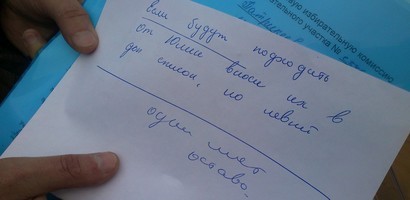 ную избирательную комиссию
ательного участка №
Если будут подходить
от Юлии вноси их в
доп список, но левый
один лист
оставь.